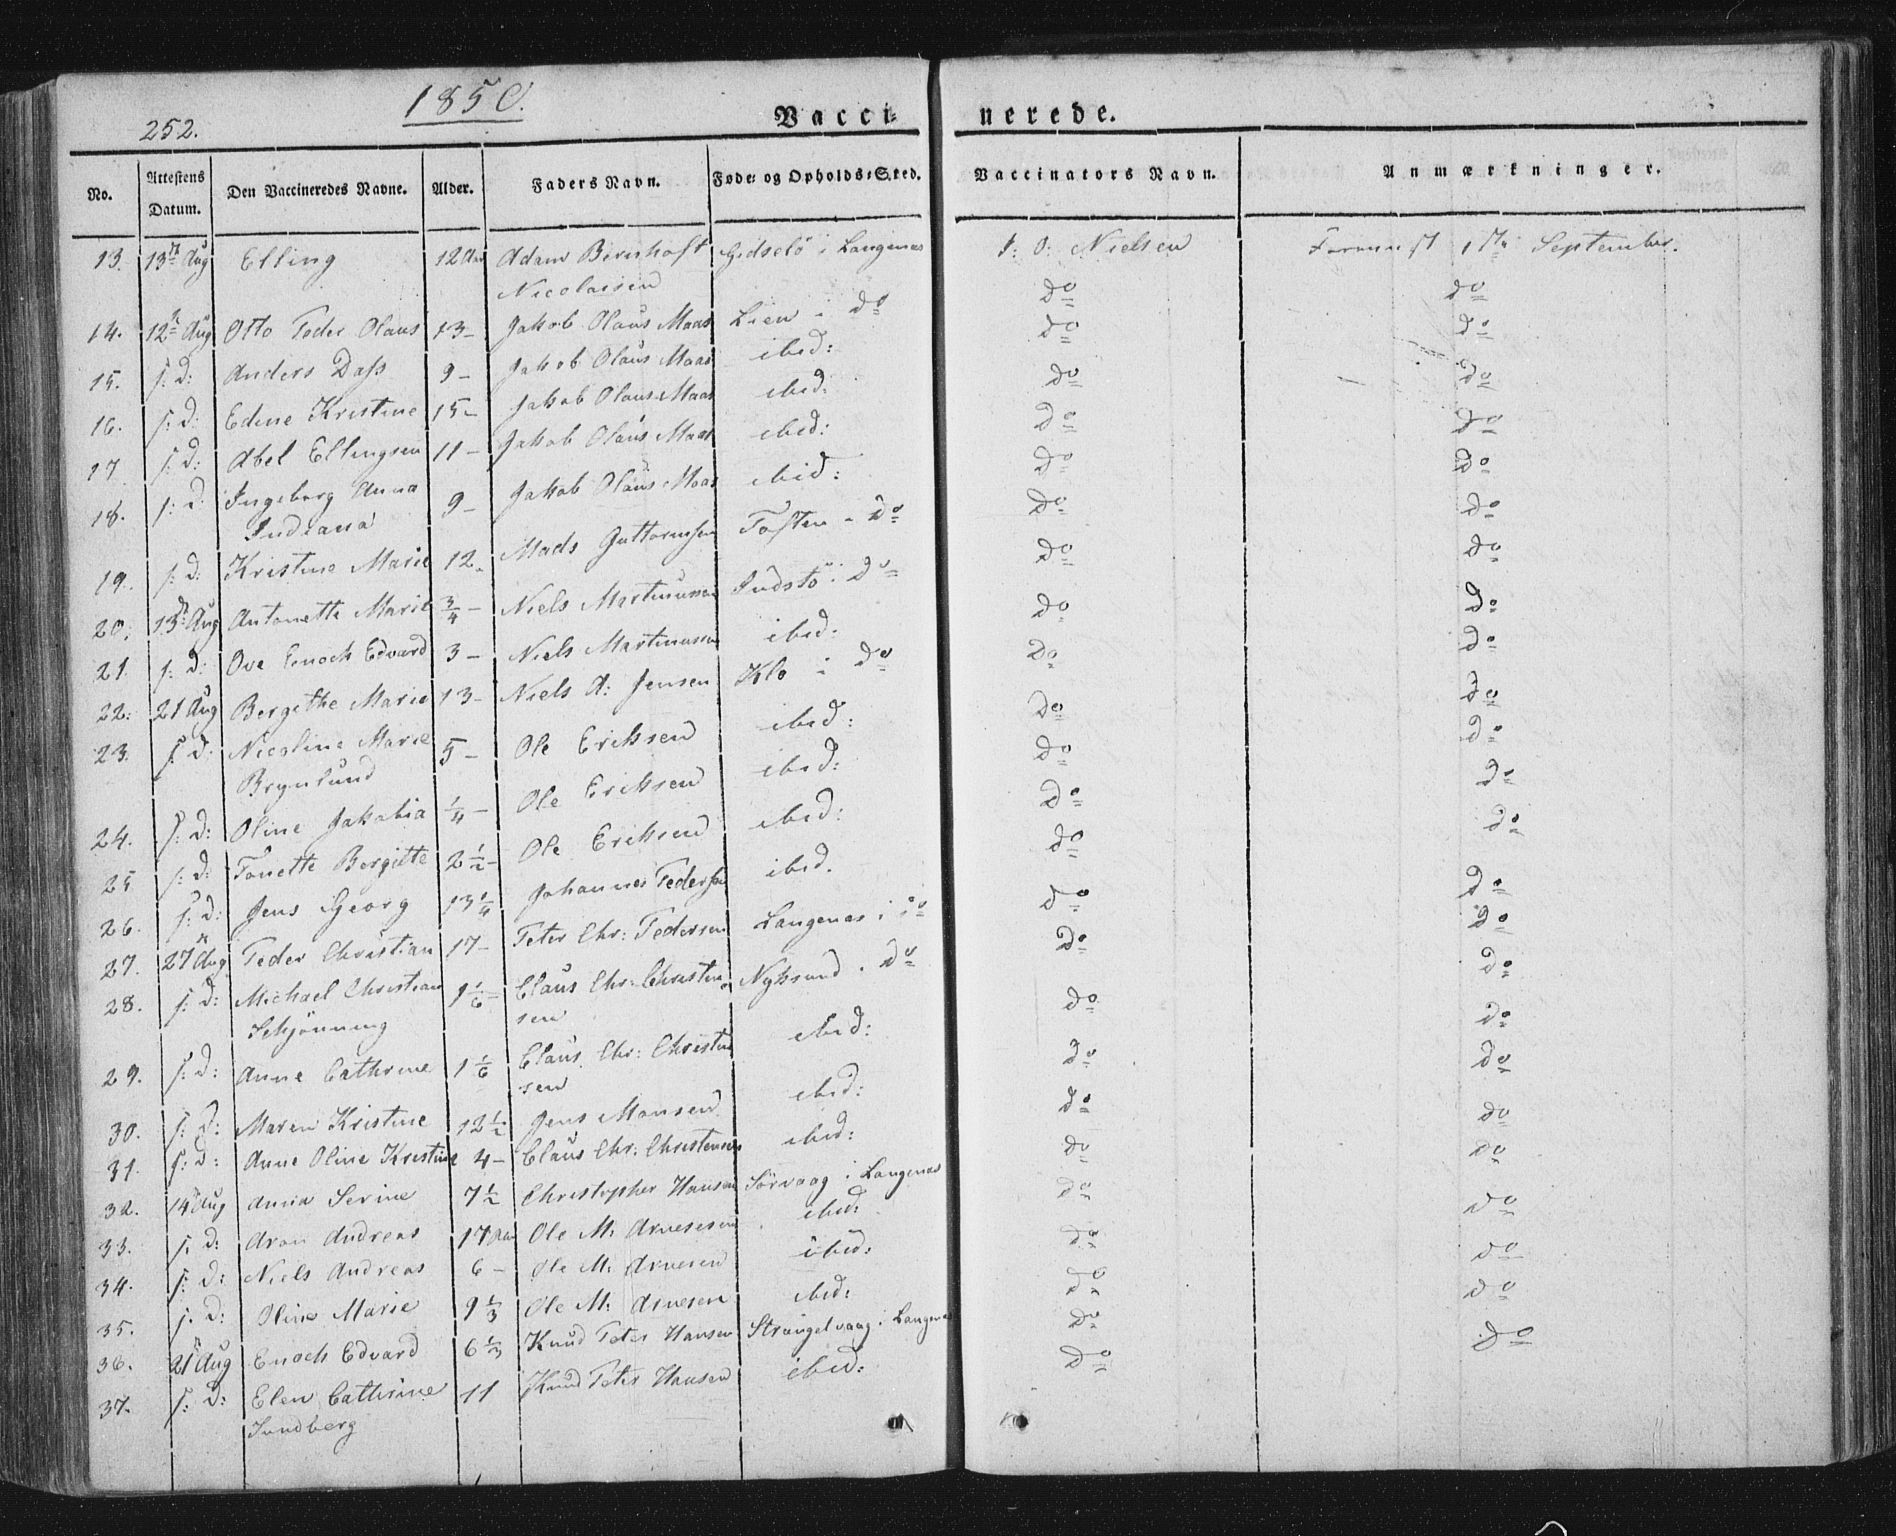 252.
1850.
Vacci-nerede.
No. | Attestens Datum. | Den Vaccineredes Navne. | Alder. | Faders Navn. | Føde- og Opholds-Sted. | Vaccinators Navn. | Anmærkninger.
13. | 13de Aug | Elling | 12 Aar | Adam Bernhoft | Gidselö i Langenæs | Nielsen | 1ste September.
Nicolaisen
14. | 12te Aug | Otto Peder Olaus | 13 – | Jakob Olaus Maas | Lien i do | do | do
15. | s: d: | Anders Dass | 9 – | Jakob Olaus Maas | ibid: | do | do
16. | s: d: | Edine Kristine | 15 – | Jakob Olaus Maas | ibid: | do | do
17 | s: d: | Abel Ellingsen | 11 – | Jakob Olaus Maas | ibid: | do | do
18. | s: d: | Ingeborg Anna | 9 – | Jakob Olaus Maas | ibid: | do | do
Indiana
19. | s: d: | Kristine Marie | 12 – | Mads Guttormsen | Tosten i do | do | do
20. | 13de Aug | Antonette Marie | 3/4 – | Niels Martinussen | Indstö i do | do | do
21. | s: d: | Ove Enoch Edvard | 3 – | Niels Martinussen | ibid: | do | do
22. | 21 Aug | Bergithe Marie | 13 – | Niels A: Jensen | Klo i do | do | do
23. | s: d: | Nicoline Marie | 5 – | Ole Eriksen | ibid: | do | do
Brynlund
24. | s: d: | Oline Jakobia | 1/4 – | Ole Eriksen | ibid: | do | do
25 | s: d: | Tonette Bergitte | 2 1/2 – | Ole Eriksen | ibid: | do | do
26. | s: d: | Jens Georg | 13 1/4 | Johannes Pedersen | ibid. | do | do
27. | 27de Aug | Peder Christian | 17 – | Peter Chr: Pedersen | Langenæs i do | do | do
28. | s: d: | Michael Christian | 1 1/6 – | Claus Chr: Christen- | Nyksund i do | do | do
Schjönning | sen
29. | s: d: | Anne Cathrine | 1 1/6 | Claus Chr: Christen | ibid: | do | do
sen
30. | s: d: | Maren Kristine | 12 1/2 | Jens Monsen | ibid: | do | do
31. | s: d: | Anne Oline Kristine | 4 – | Claus Chr: Christensen | ibid: | do | do
32. | 14 Aug | Anna Serine | 7 1/2 | Christopher Hansen | Sörvaag i Langenæs | do | do
33. | s: d: | Aron Andreas | 17 Aar | Ole M: Arnesen | ibid: | do | do
34. | s: d: | Niels Andreas | 6 – | Ole M: Arnesen | ibid: | do | do
35. | s: d: | Oline Marie | 9 1/3 | Ole M: Arnesen | ibid: | do | do
36. | 21 Aug | Enoch Edvard | 6 1/3 | Knud Peter Hansen | Strængelvaag i Langenæs | do | do
37. | s: d: | Elen Cathrine | 11 | Knud Peter Hansen | ibid: | do
Sundberg